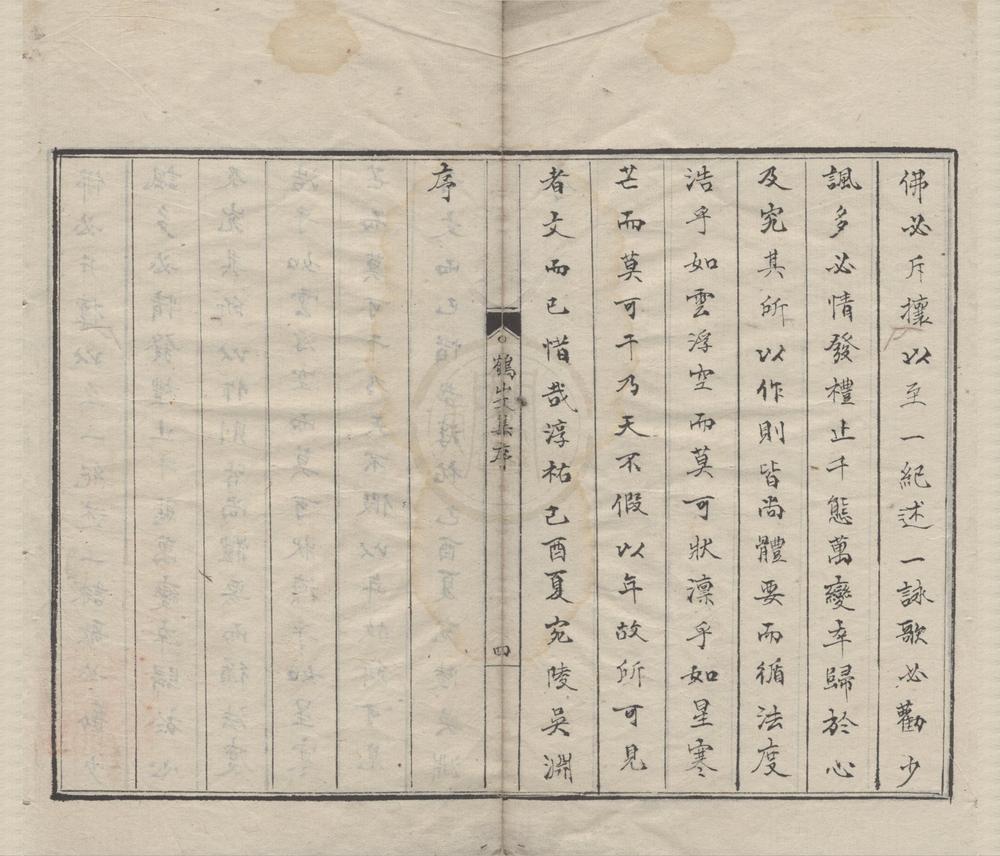 佛必斥攘以至一紀述一詠歌必勸少
諷多必情發禮止千態萬變卒歸於心
及究其所以作則皆尚體要而循法度
浩乎如雲浮空而莫可狀凛乎如星寒
芒而莫可干乃天不假以年故所可見
者文而已惜哉淳祐己酉夏宛陵吳淵
序
鶴山文集序
四